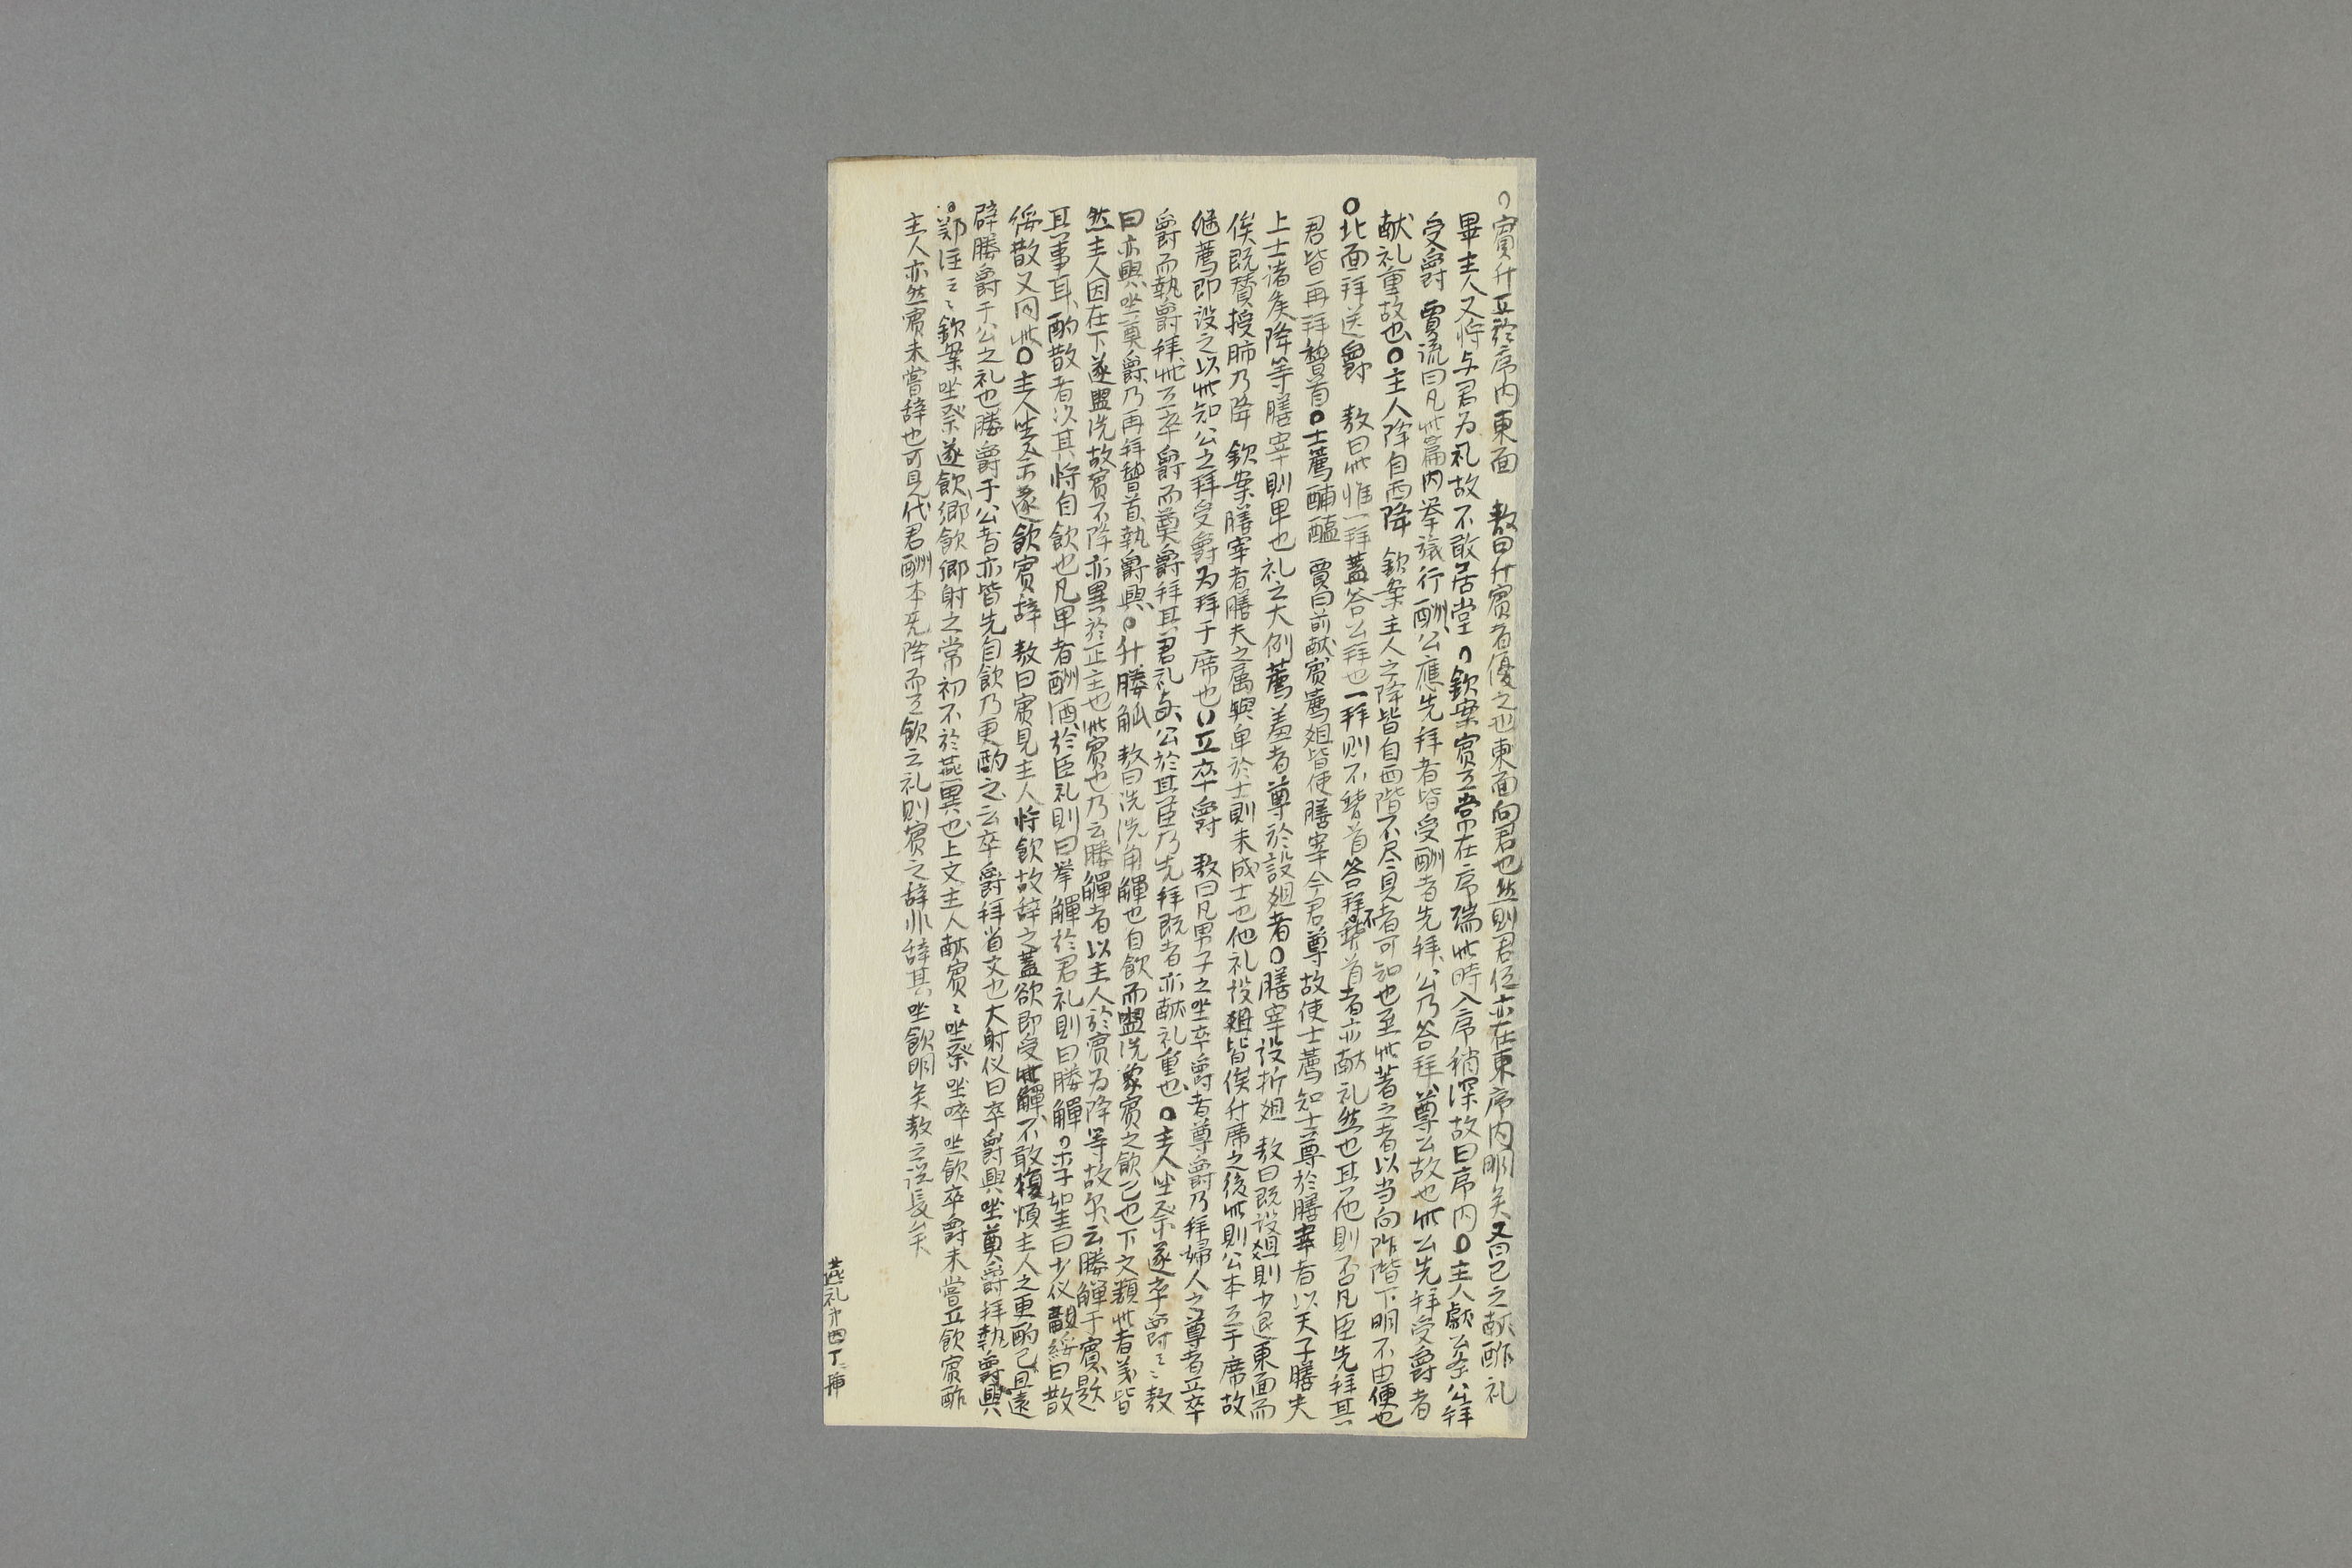 ○賓升立於序内東面　敖曰升賓者優之也東面向君也然則君位亦在東序内明矣又曰已之献酢礼
畢主人又将与君为礼故不敢居堂○欽案賓立常在序端此時入序稍深故曰序内○主人献公公拜
受爵　賈疏曰凡此篇内举旅行酬公應先拜者皆受酬者先拜公乃答拜尊公故也此公先拜受爵者
献礼重故也○主人降自西降　欽案主人之降皆自西階不尽見者可知也至此著之者以当向阼階下明不由便也
○北面拜送爵　敖曰此惟一拜蓋答公拜也一拜則不稽首答拜不稽首者亦献礼然也其他則否凡臣先拜其
君皆再拜稽首○士薦脯醢　賈曰前献賓薦俎皆使膳宰今君尊故使士薦知士尊於膳宰者以天子膳夫
上士諸矦降等膳宰則卑也礼之大例薦羞者尊於設俎者○膳宰設折俎　敖曰既設俎則少退東面而
俟既贊授肺乃降　欽案膳宰者膳夫之属與卑於士則未成士也他礼設俎皆俟升席之後此則公本立于席故
継薦即設之以此知公之拜受爵为拜于席也○立卒爵　敖曰凡男子之坐卒爵者尊爵乃拜婦人之尊者立卒
爵而執爵拜此立卒爵而奠爵拜其君礼与公於其臣乃先拜既者亦献礼重也○主人坐祭遂卒爵ミ　敖
曰亦興坐奠爵乃再拜稽首執爵興○升媵觚　敖曰洗洗角觶也自飲而盥洗象賓之飲己也下文類此者義皆
然主人因在下遂盥洗故賓不降亦異於正主也此賓也乃云媵觶者以主人於賓为降等故尓云媵觶于賓題
其事耳酌散者次其将自飲也凡卑者酬酒於臣礼則曰举觶於君礼則曰媵觶○李如圭曰少仪觀綏曰散
綏散又同此○主人坐祭遂飲賓辞　敖曰賓見主人将飲故辞之蓋欲即受此觶不敢復煩主人之更酌己且遠
辟媵爵于公之礼也媵爵于公者亦皆先自飲乃更酌之云卒爵拜省文也大射仪曰卒爵興坐奠爵拜執爵興
○鄭注ミミ欽案坐祭遂飲鄉飲鄉射之常初不於燕異也上文主人献賓ミ坐祭坐啐坐飲卒爵未嘗立飲賓酢
主人亦然賓未嘗辞也可見代君酬本先降而立飲之礼則賓之辞非辞其坐飲明矣敖之説長矣
燕礼才四丁二掃